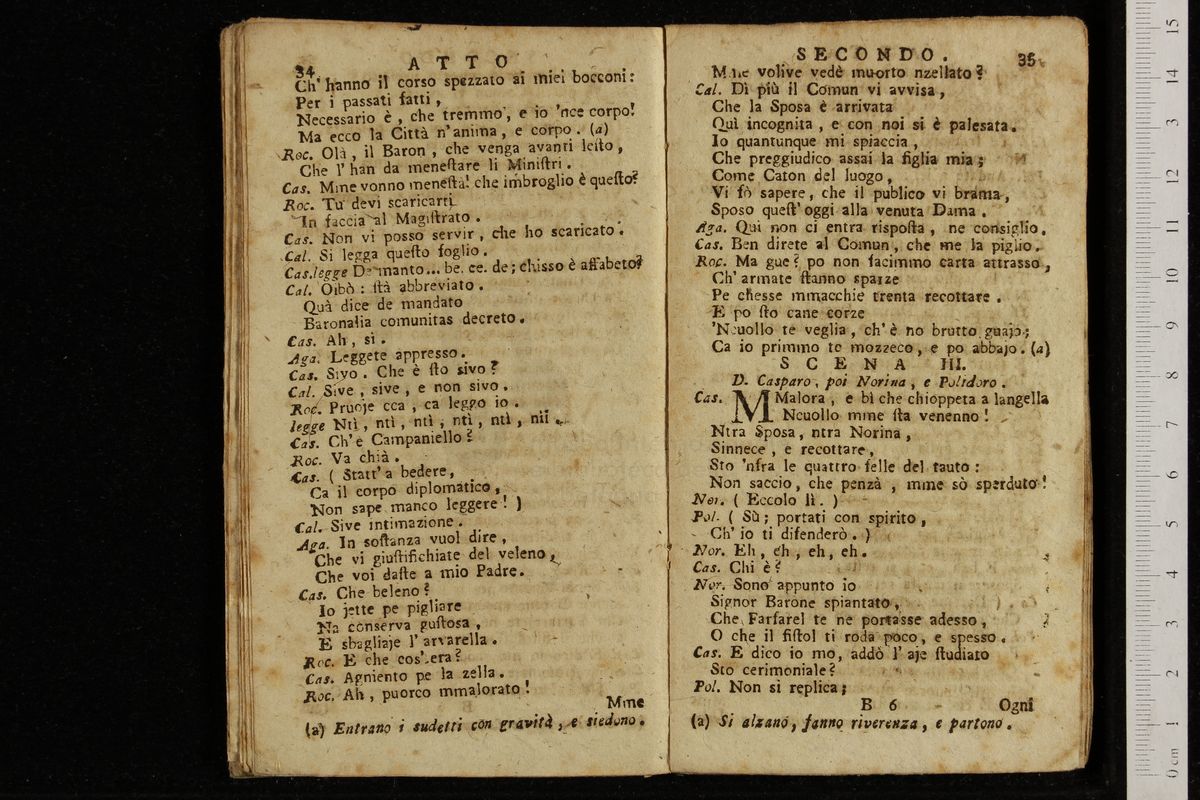 34
ATTO
Ch' hanno il corso spezzato ai miei bocconi:
Per i passati fatti,
Necessario è, che tremmo, e io 'nce corpo!
Ma ecco la Città n'anima, e corpo. (a)
Roc. Olà, il Baron, che venga avanti lesto,
Che l'han da meneſtare li Miniſtri.
Cas. Mme vonno meneſtà! che imbroglio è queſto?
Roc. Tu devi scaricarti
In faccia al Magiſtrato.
Cas. Non vi posso servir, che ho scaricato.
Cal. Si legga queſto foglio.
Cas. legge De manto... be. ce. de; chisso è affabeto?
Cal. Oibò: ſtà abbreviato.
Quà dice de mandato
Baronalia comunitas decreto.
Cas. Ah, si.
Aga. Leggete appresso.
Cas. Sivo. Che è ſto sivo?
Cal. Sive, sive, e non sivo.
Roc. Pruoje cca, ca leggo io.
legge Ntì, ntì, ntì, ntì, ntì, nti
Cas. Ch'è Campaniello?
Roc. Va chià.
Cas. (Statt'a bedere,
Ca il corpo diplomatico,
Non sape manco leggere!)
Cal. Sive intimazione.
Aga. In soſtanza vuol dire,
Che vi giuſtifichiate del veleno,
Che voi daſte a mio Padre.
Cas. Che beleno?
Io jette pe pigliare
Na conserva guſtosa,
E sbagliaje l'arvarella.
Roc. E che cos'era?
Cas. Agniento pe la zella.
Roc. Ah, puorco mmalorato!
Mme
(a) Entrano i sudetti con gravità, e siedono.
SECONDO.
35
Mme volive vedè muorto nzellato?
Cal. Di più il Comun vi avvisa,
Che la Sposa è arrivata
Quì incognita, e con noi si è palesata.
Io quantunque mi spiaccia,
Che preggiudico assai la figlia mia;
Come Caton del luogo,
Vi fò sapere, che il publico vi brama,
Sposo queſt'oggi alla venuta Dama.
Aga. Qui non ci entra risposta, ne consiglio.
Cas. Ben direte al Comun, che me la piglio.
Roc. Ma gue? po non facimmo carta attrasso,
Ch'armate ſtanno sparze
Pe chesse mmacchie trenta recottare.
E po ſto cane corze
'Ncuollo te veglia, ch'è no brutto guajo;
Ca io primmo te mozzeco, e po abbajo. (a)
SCENA III.
D. Casparo, poi Norina, e Polidoro.
Cas. MMalora, e bì che chioppeta a langella
Ncuollo mme ſta venenno!
Ntra Sposa, ntra Norina,
Sinnece, e recottare,
Sto 'nfra le quattro felle del tauto:
Non saccio, che penzà, mme sò sperduto!
Nor. (Eccolo lì.)
Pol. (Sù; portati con spirito,
Ch'io ti difenderò.)
Nor. Eh, eh, eh, eh.
Cas. Chi è?
Nor. Sono appunto io
Signor Barone spiantato,
Che Farfarel te ne portasse adesso,
O che il fiſtol ti roda poco, e spesso.
Cas. E dico io mo, addò l'aje ſtudiato
Sto cerimoniale?
Pol. Non si replica;
B 6
Ogni
(a) Si alzano, fanno riverenza, e partono.
0 cm 1 2 3 4 5 6 7 8 9 10 11 12 13 14 15